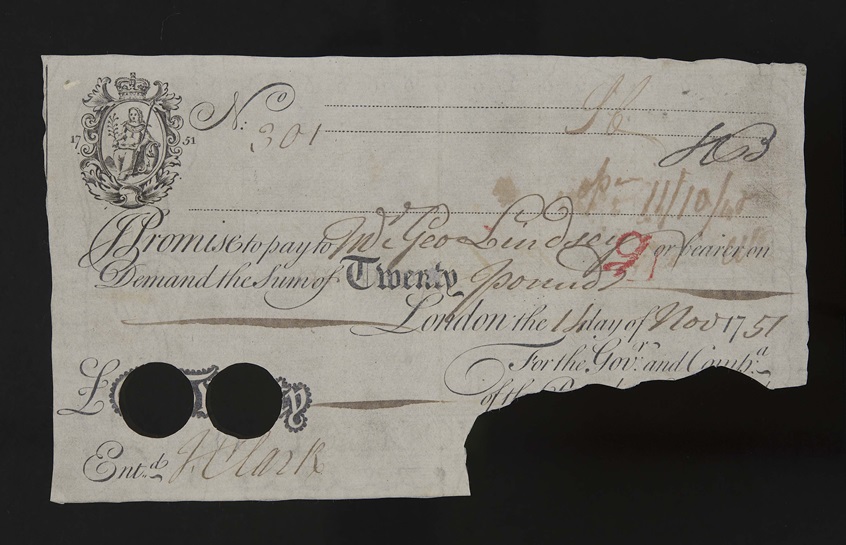 17 51
N.o 301
HB
11/10/
I Promise to pay to Mr Geo Lindsey or bearer on
Demand the Sum of Twenty pounds
London the 1 day of Nov 1751
For the Gov.r and Comp.a
of the
£
Ent.d J. Clark